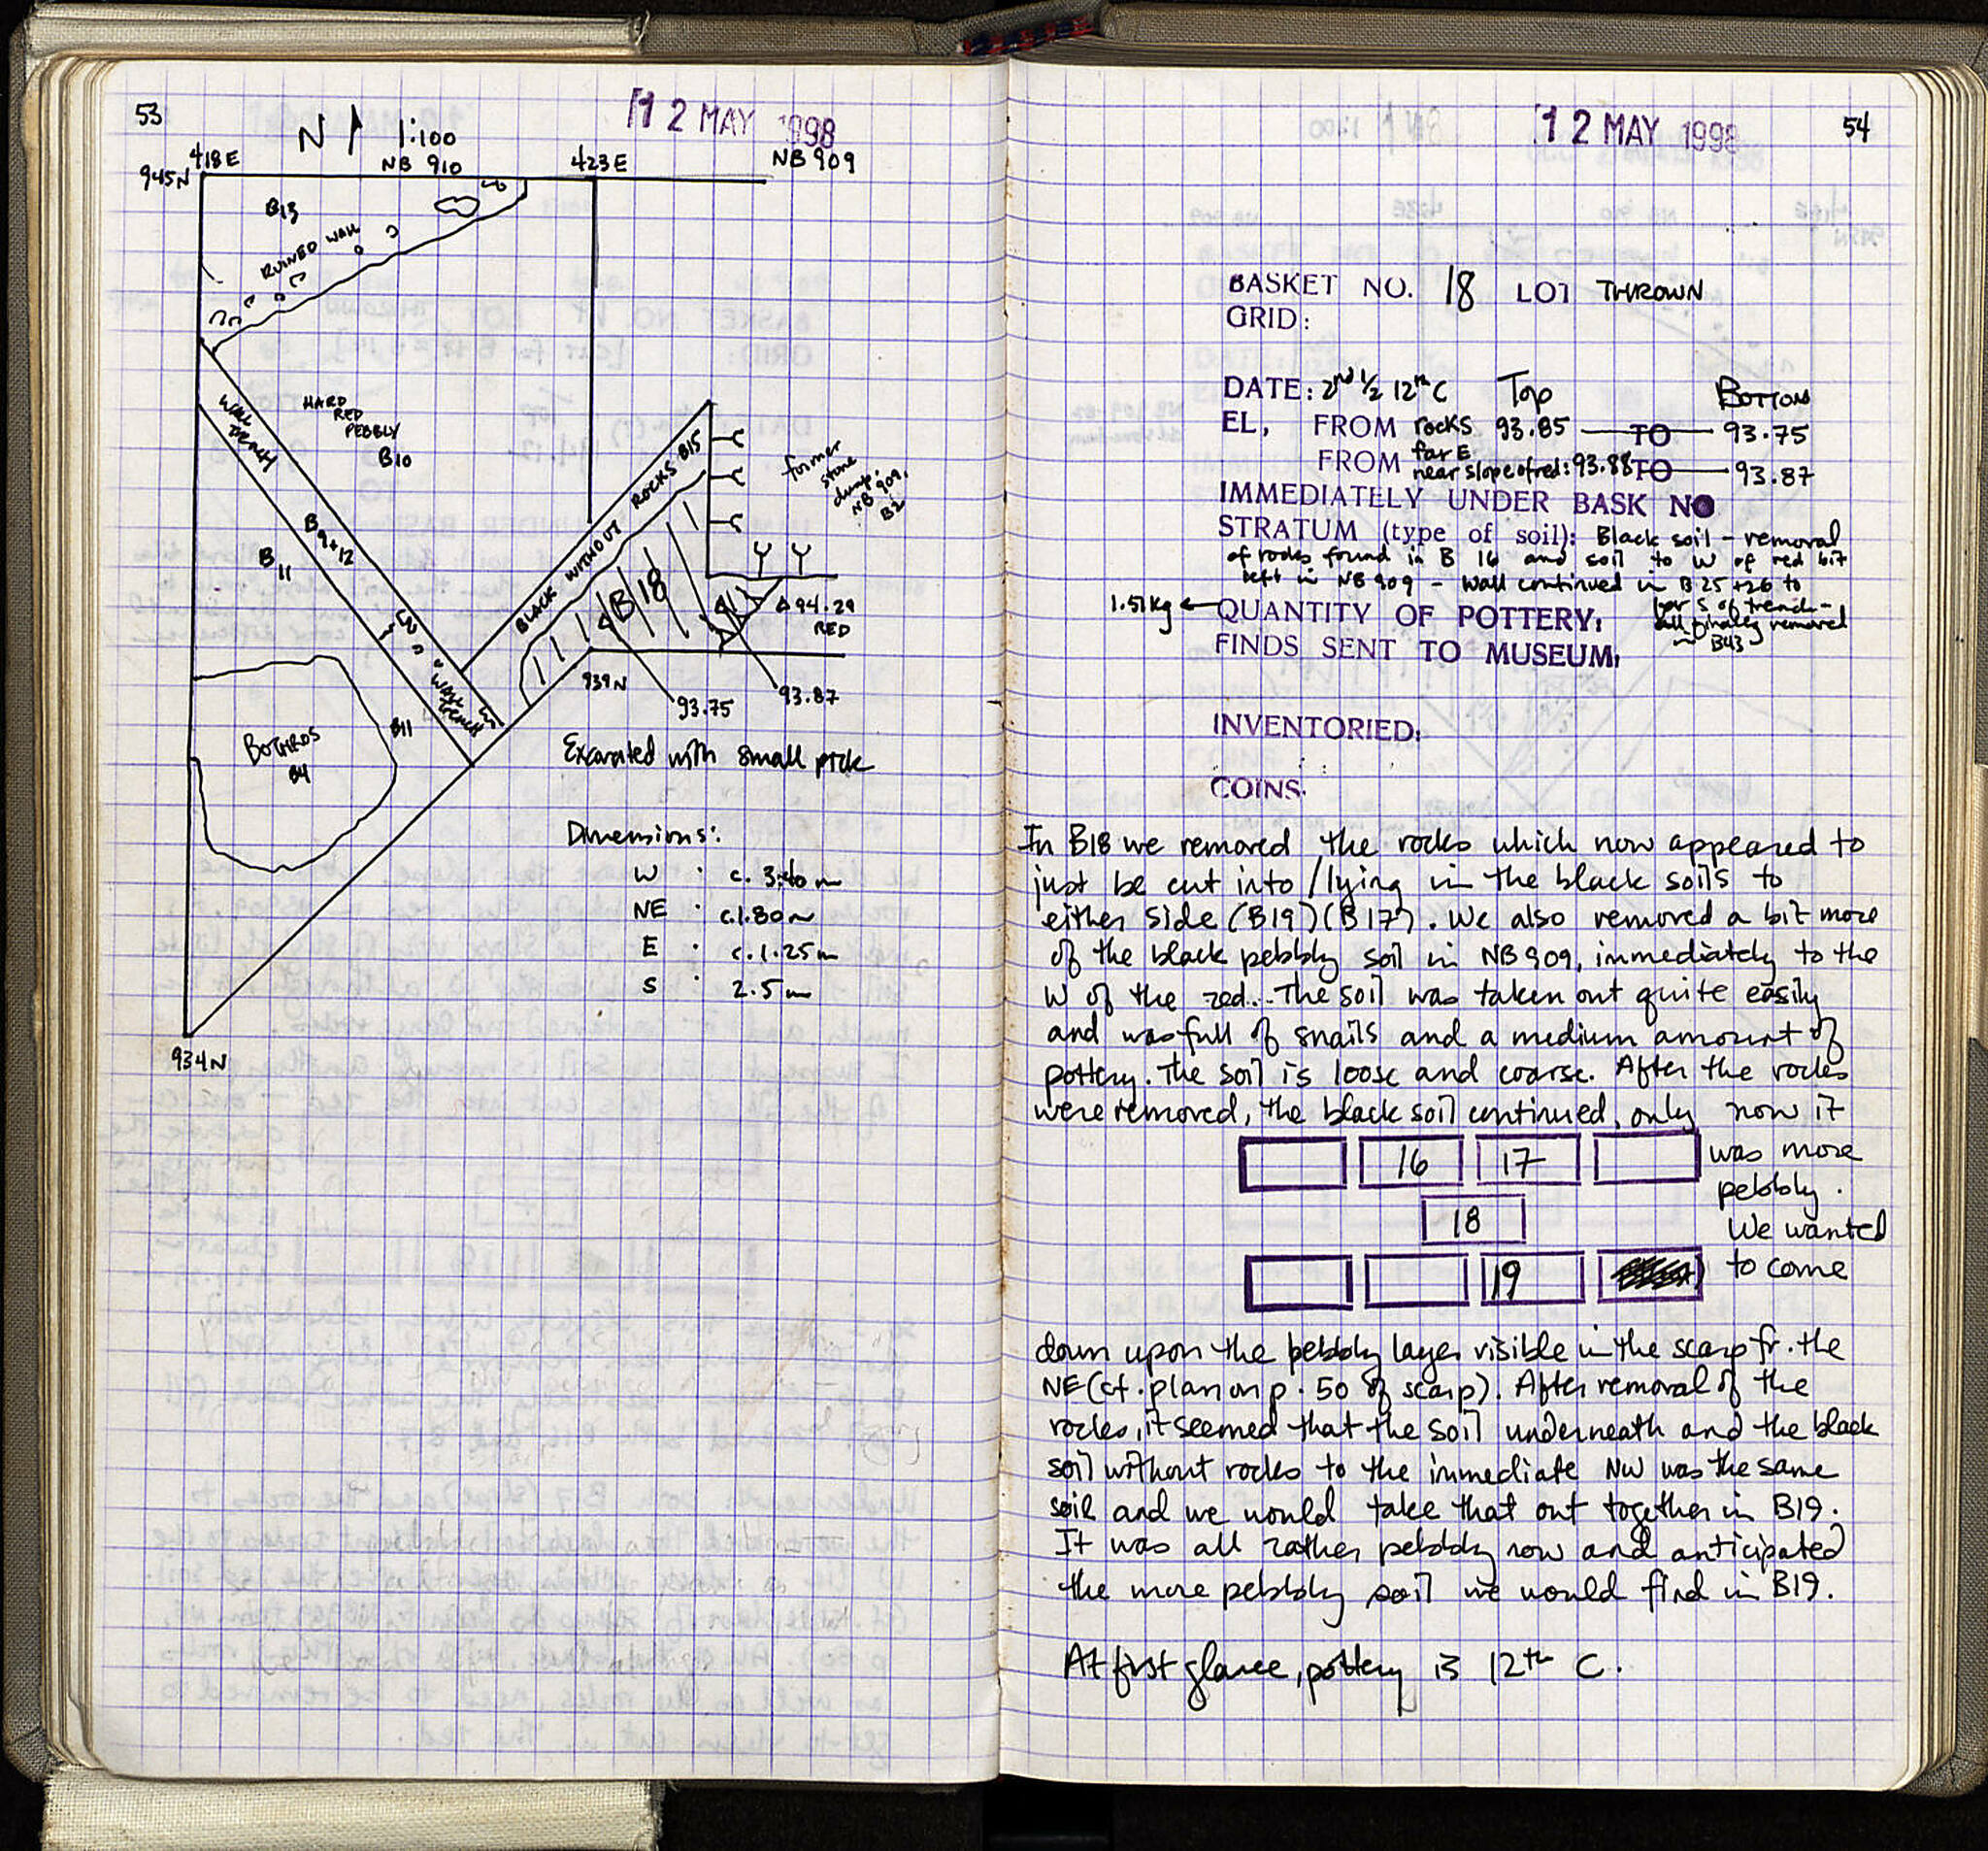 53
12 MAY 1998
N 1:100
418E NB 910 423E NB 909
945N
B13
RUINED WALL
HARD
RED
PEBBLY
B10
WALL
TRENCH
B 9+12
B 11
BLACK WITHOUT ROCKS B15
former
stone
dump:
NB 909,
B2
B 18
94.29
RED
939N
93.75
93.87
WALL
TRENCH
B11
BOTHROS
B4
Excavated with small pick
Dimensions:
W : c. 3.40 m
NE : c.1.80m
E : c.1.25m
S : 2.5m
934N
12 MAY 1998
54
BASKET NO. 18 LOT THROWN
GRID:
DATE: 2ND 1/2 12th C Top Bottom
EL, FROM rocks 93.85 — TO — 93.75
FROM far E near slope of red: 93.88 TO — 93.87
IMMEDIATELY UNDER BASK NO
STRATUM (type of soil): Black soil - removal
of rocks found in B 16 and soil to W of red bit
left in NB 909 - wall continued in B 25 + 26 to
far S of trench -
all finally removed
in B43
1.51kg ← QUANTITY OF POTTERY:
FINDS SENT TO MUSEUM:
INVENTORIED:
COINS.
In B18 we removed the rocks which now appeared to
just be cut into / lying in the black soils to
either side (B19)(B17). We also removed a bit more
of the black pebbly soil in NB 909, immediately to the
W of the red. The soil was taken out quite easily
and was full of snails and a medium amount of
pottery. The soil is loose and coarse. After the rocks
were removed, the black soil continued, only now it
was more
pebbly.
We wanted
to come
16 17
18
19
down upon the pebbly layer visible in the scarp fr. the
NE (cf. plan on p. 50 of scarp). After removal of the
rocks, it seemed that the soil underneath and the black
soil without rocks to the immediate NW was the same
soil and we would take that out together in B19.
It was all rather pebbly now and anticipated
the more pebbly soil we would find in B19.
At first glance, pottery is 12th C.